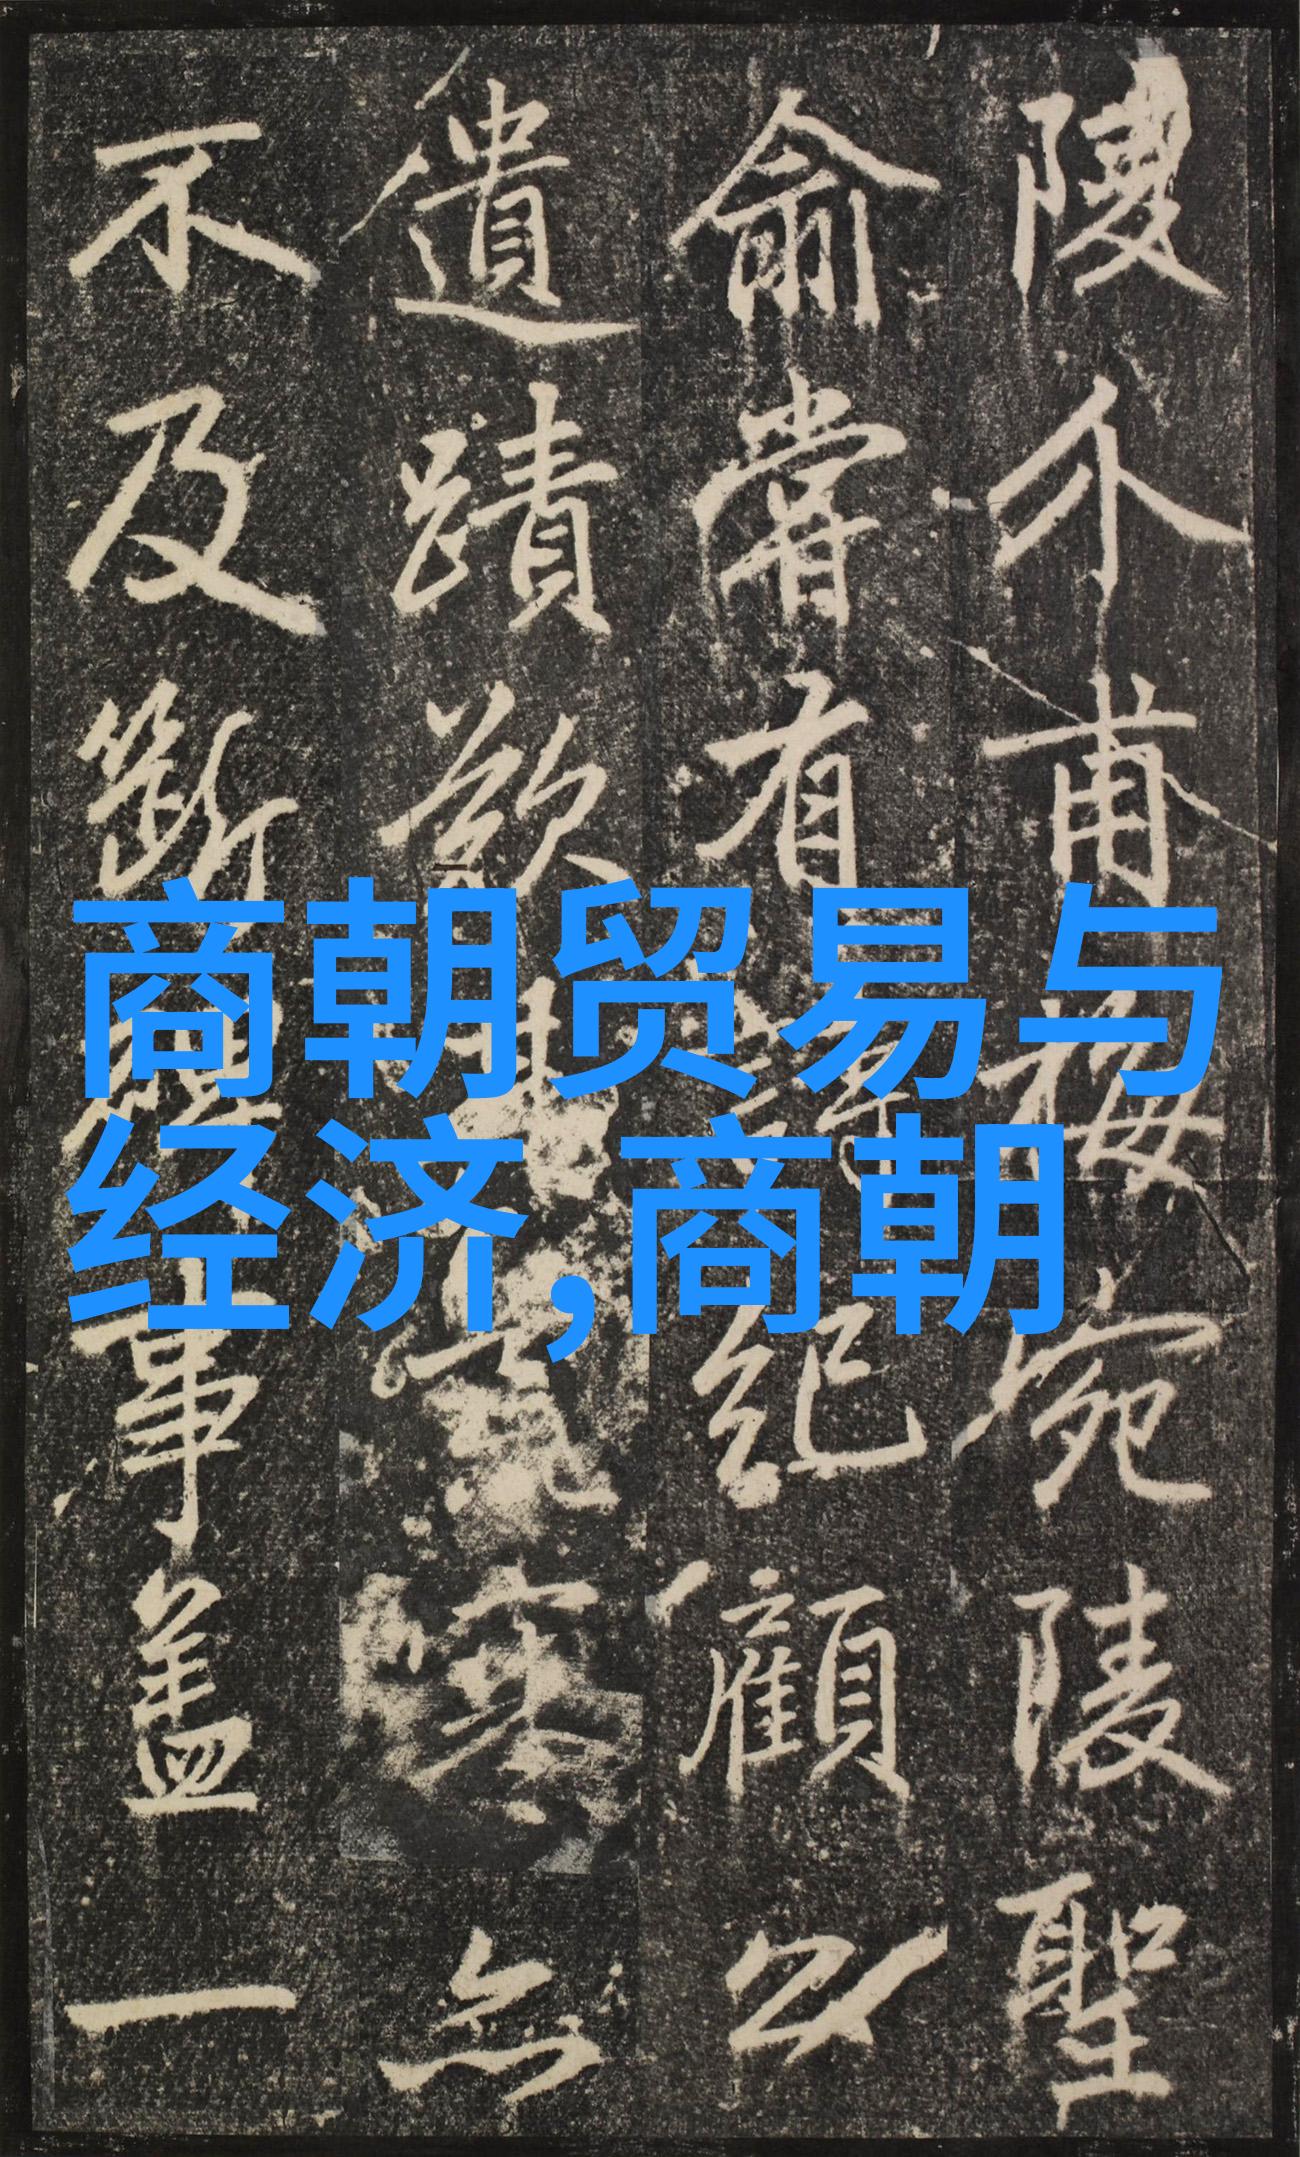 陵介甫梅宛陵聖
俞嘗有紀顧以
遺蹟欲塞無
不及斷事蓋一
商朝贸易与
经济,商朝